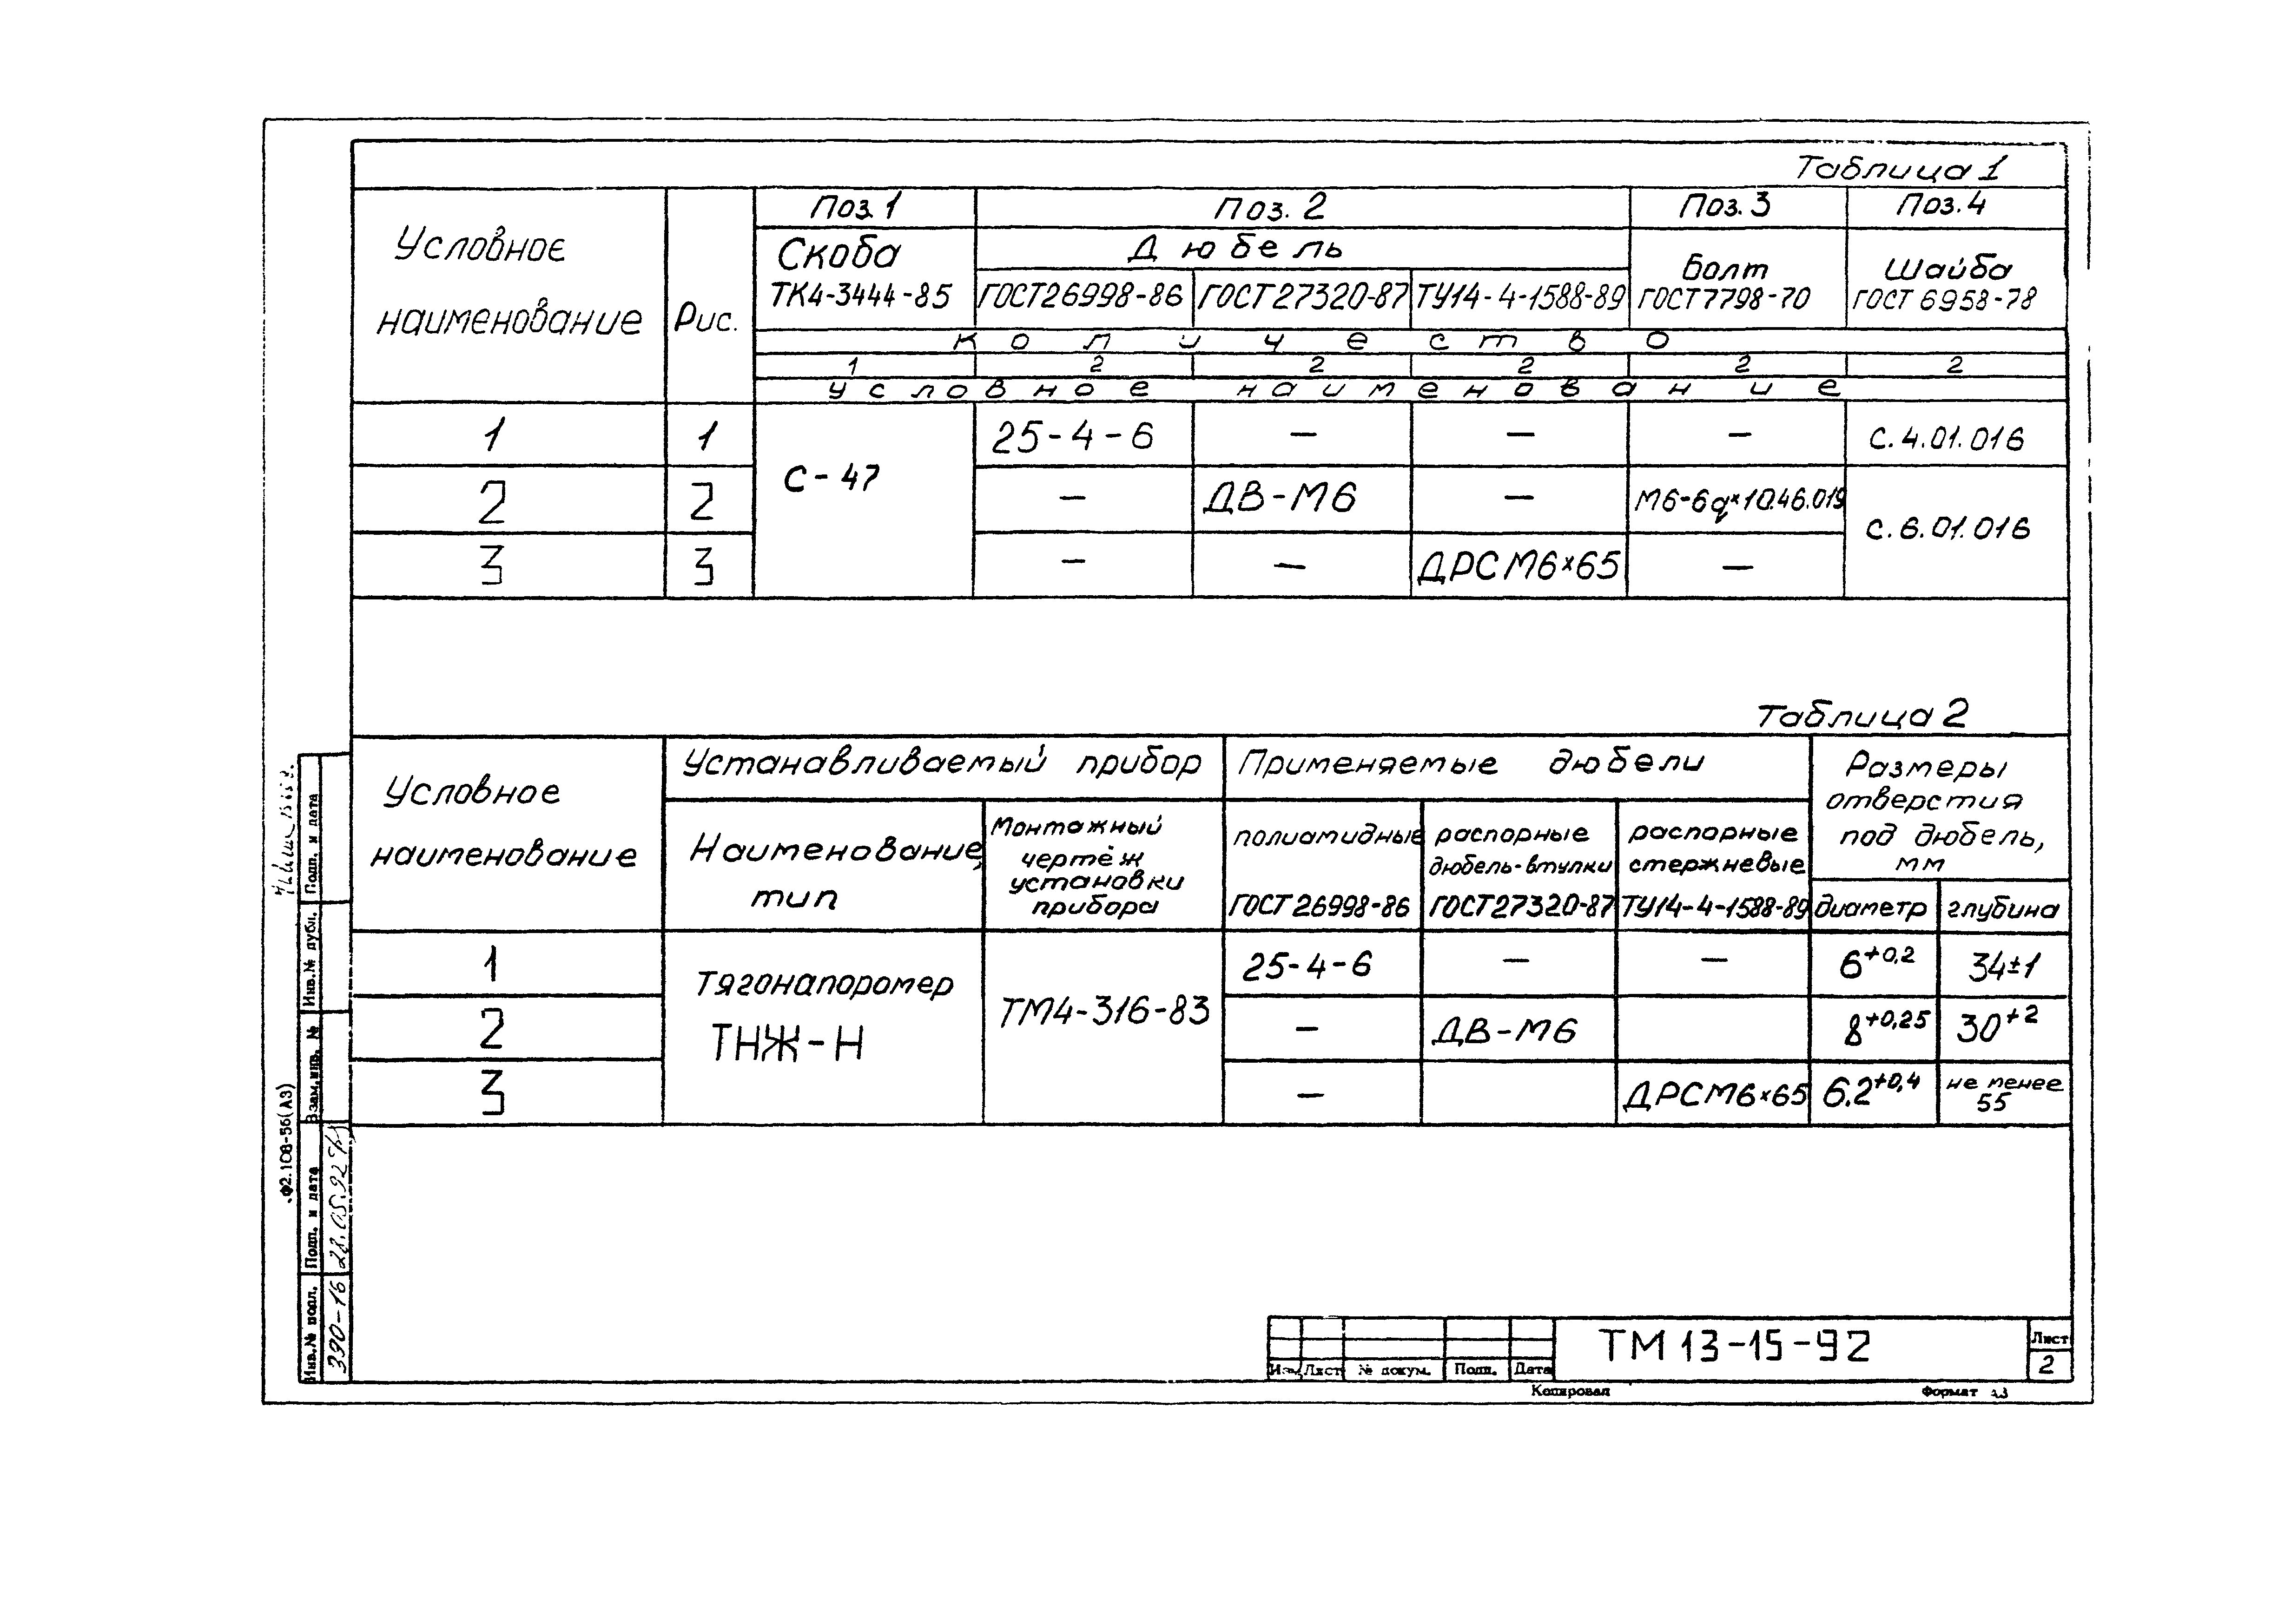 Таблица 1
Условное наименование
Рис.
Поз. 1
Поз. 2
Поз. 3
Поз. 4
Скоба
ТК4-3444-85
Дюбель
ГОСТ 26998-86
ГОСТ 27320-87
ТУ14-4-1588-89
Болт
ГОСТ 7798-70
Шайба
ГОСТ 6958-78
Количество
1 2 2 2 2 2
Условное наименование
1 1 С-47 25-4-6 – – – С.4.01.016
2 2 – ДВ-М6 – М6-6q×10.46.019 С.6.01.016
3 3 – – ДРСМ6×65 –
Таблица 2
Условное наименование
Устанавливаемый прибор
Применяемые дюбели
Размеры
отверстия
под дюбель,
мм
Наименование,
тип
Монтажный
чертёж
установки
прибора
полиамидные
ГОСТ 26998-86
распорные
дюбель-втулки
ГОСТ 27320-87
распорные
стержневые
ТУ14-4-1588-89
диаметр
глубина
1 Тягонапоромер ТНЖ-Н ТМ4-316-83 25-4-6 – – 6+0,2 34±1
2 – ДВ-М6 8+0,25 30+2
3 – ДРСМ6×65 6.2+0,4 не менее 55
Подп. и дата
Инв.№ дубл.
Взам.инв. №
Подп. и дата
28.05.92
Инв.№ подл.
390-16
Ф2.108-56(А3)
ТМ 13-15-92
Лист
2
Изм Лист № докум. Подп. Дата
Копировал
Формат А3